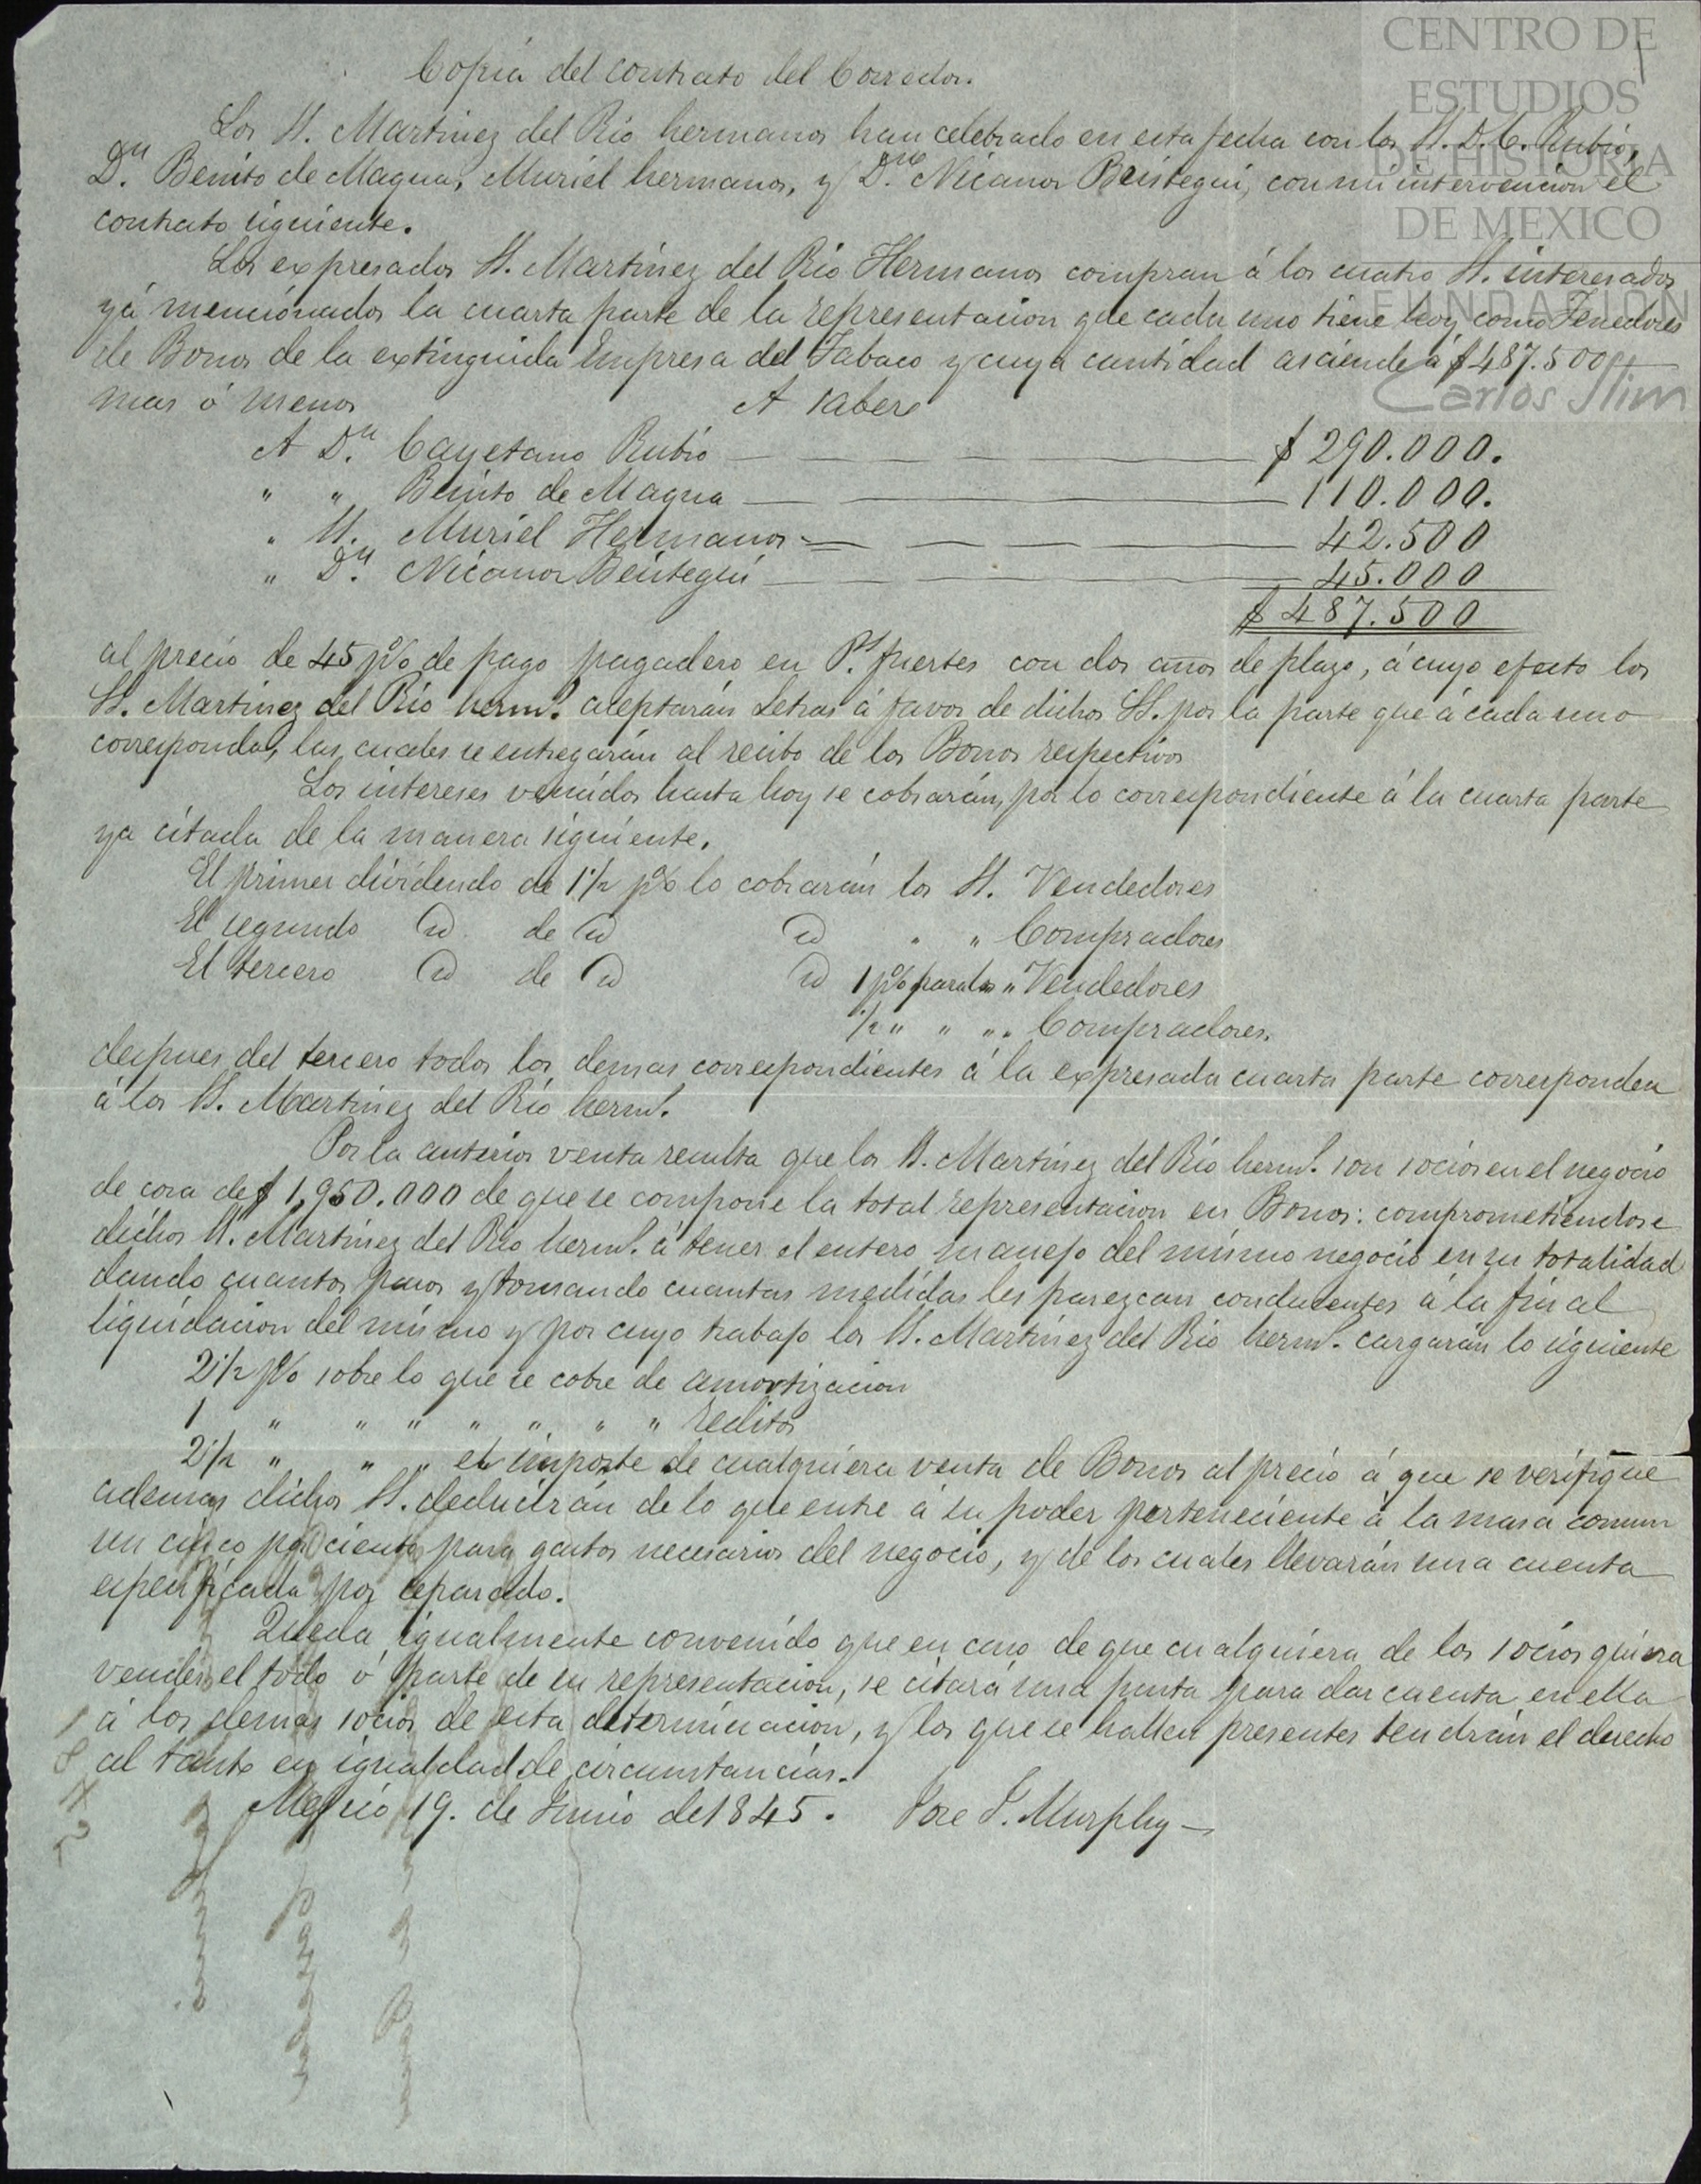 Copia del contrato del Corredor.
Los SS. Martinez del Rio hermanos han celebrado en esta fecha con los SS. D. C. Rubio,
Dn. Benito de Magua, Muriel hermanos, y Dn. Nicanor Beistegui, con mi intervencion el
contrato siguiente.
Los expresados SS. Martinez del Rio Hermanos compran á los cuatro SS. interesados
yá mencionados la cuarta parte de la representacion que cada uno tiene hoy como Tenedores
de Bonos de la extinguida Empresa del Tabaco y cuya cantidad asciende á $487.500
mas ó menos A saber
A Dn. Cayetano Rubio $290.000.
" " Benito de Magua 110.000.
" SS. Muriel Hermanos 42.500
" Dn. Nicanor Beistegui 45.000
$487.500
al precio de 45 p% de pago pagadero en Ps. fuertes con dos años de plazo, á cuyo efecto los
SS. Martinez del Rio herms. aceptarán Letras á favor de dichos SS. por la parte que á cada uno
corresponda, las cuales se entregarán al recibo de los Bonos respectivos
Los intereses vencidos hasta hoy se cobrarán, por lo correspondiente á la cuarta parte
ya citada de la manera siguiente.
El primer dividendo de 1 1/2 p% lo cobrarán los SS. Vendedores
El segundo id. de id id " " Compradores
El tercero id de id id 1 p% para los " Vendedores
1/2 " " " " Compradores.
despues del tercero todos los demas correspondientes á la expresada cuarta parte corresponden
á los SS. Martinez del Rio herms.
Por la anterior venta resulta que los SS. Martinez del Rio herms. son socios en el negocio
de cosa de $1,950.000 de que se compone la total representacion en Bonos: comprometiendose
dichos SS. Martinez del Rio herms. á tener el entero manejo del mismo negocio en su totalidad
dando cuantos pasos y tomando cuantas medidas les parezcan conducentes á la final
liquidacion del mismo y por cuyo trabajo los SS. Martinez del Rio herms. cargarán lo siguiente
2 1/2 p% sobre lo que se cobre de amortizacion
1 " " " " " " " Reditos
2 1/2 " " " el importe de cualquiera venta de Bonos al precio á que se verifique
ademas dichos SS. deducirán de lo que entre á su poder perteneciente á la masa comun
un cinco por ciento para gastos necesarios del negocio, y de los cuales llevarán una cuenta
especificada por separado.
Queda igualmente convenido que en caso de que cualquiera de los socios quiera
vender el todo ó parte de su representacion, se citará una junta para dar cuenta en ella
á los demas socios de esta determinacion, y los que se hallen presentes tendrán el derecho
al tanto en igualdad de circunstancias.
Mejico 19. de Junio de 1845. Jose S. Murphy
CENTRO DE
ESTUDIOS
DE HISTORIA
DE MEXICO
FUNDACIÓN
Carlos Slim